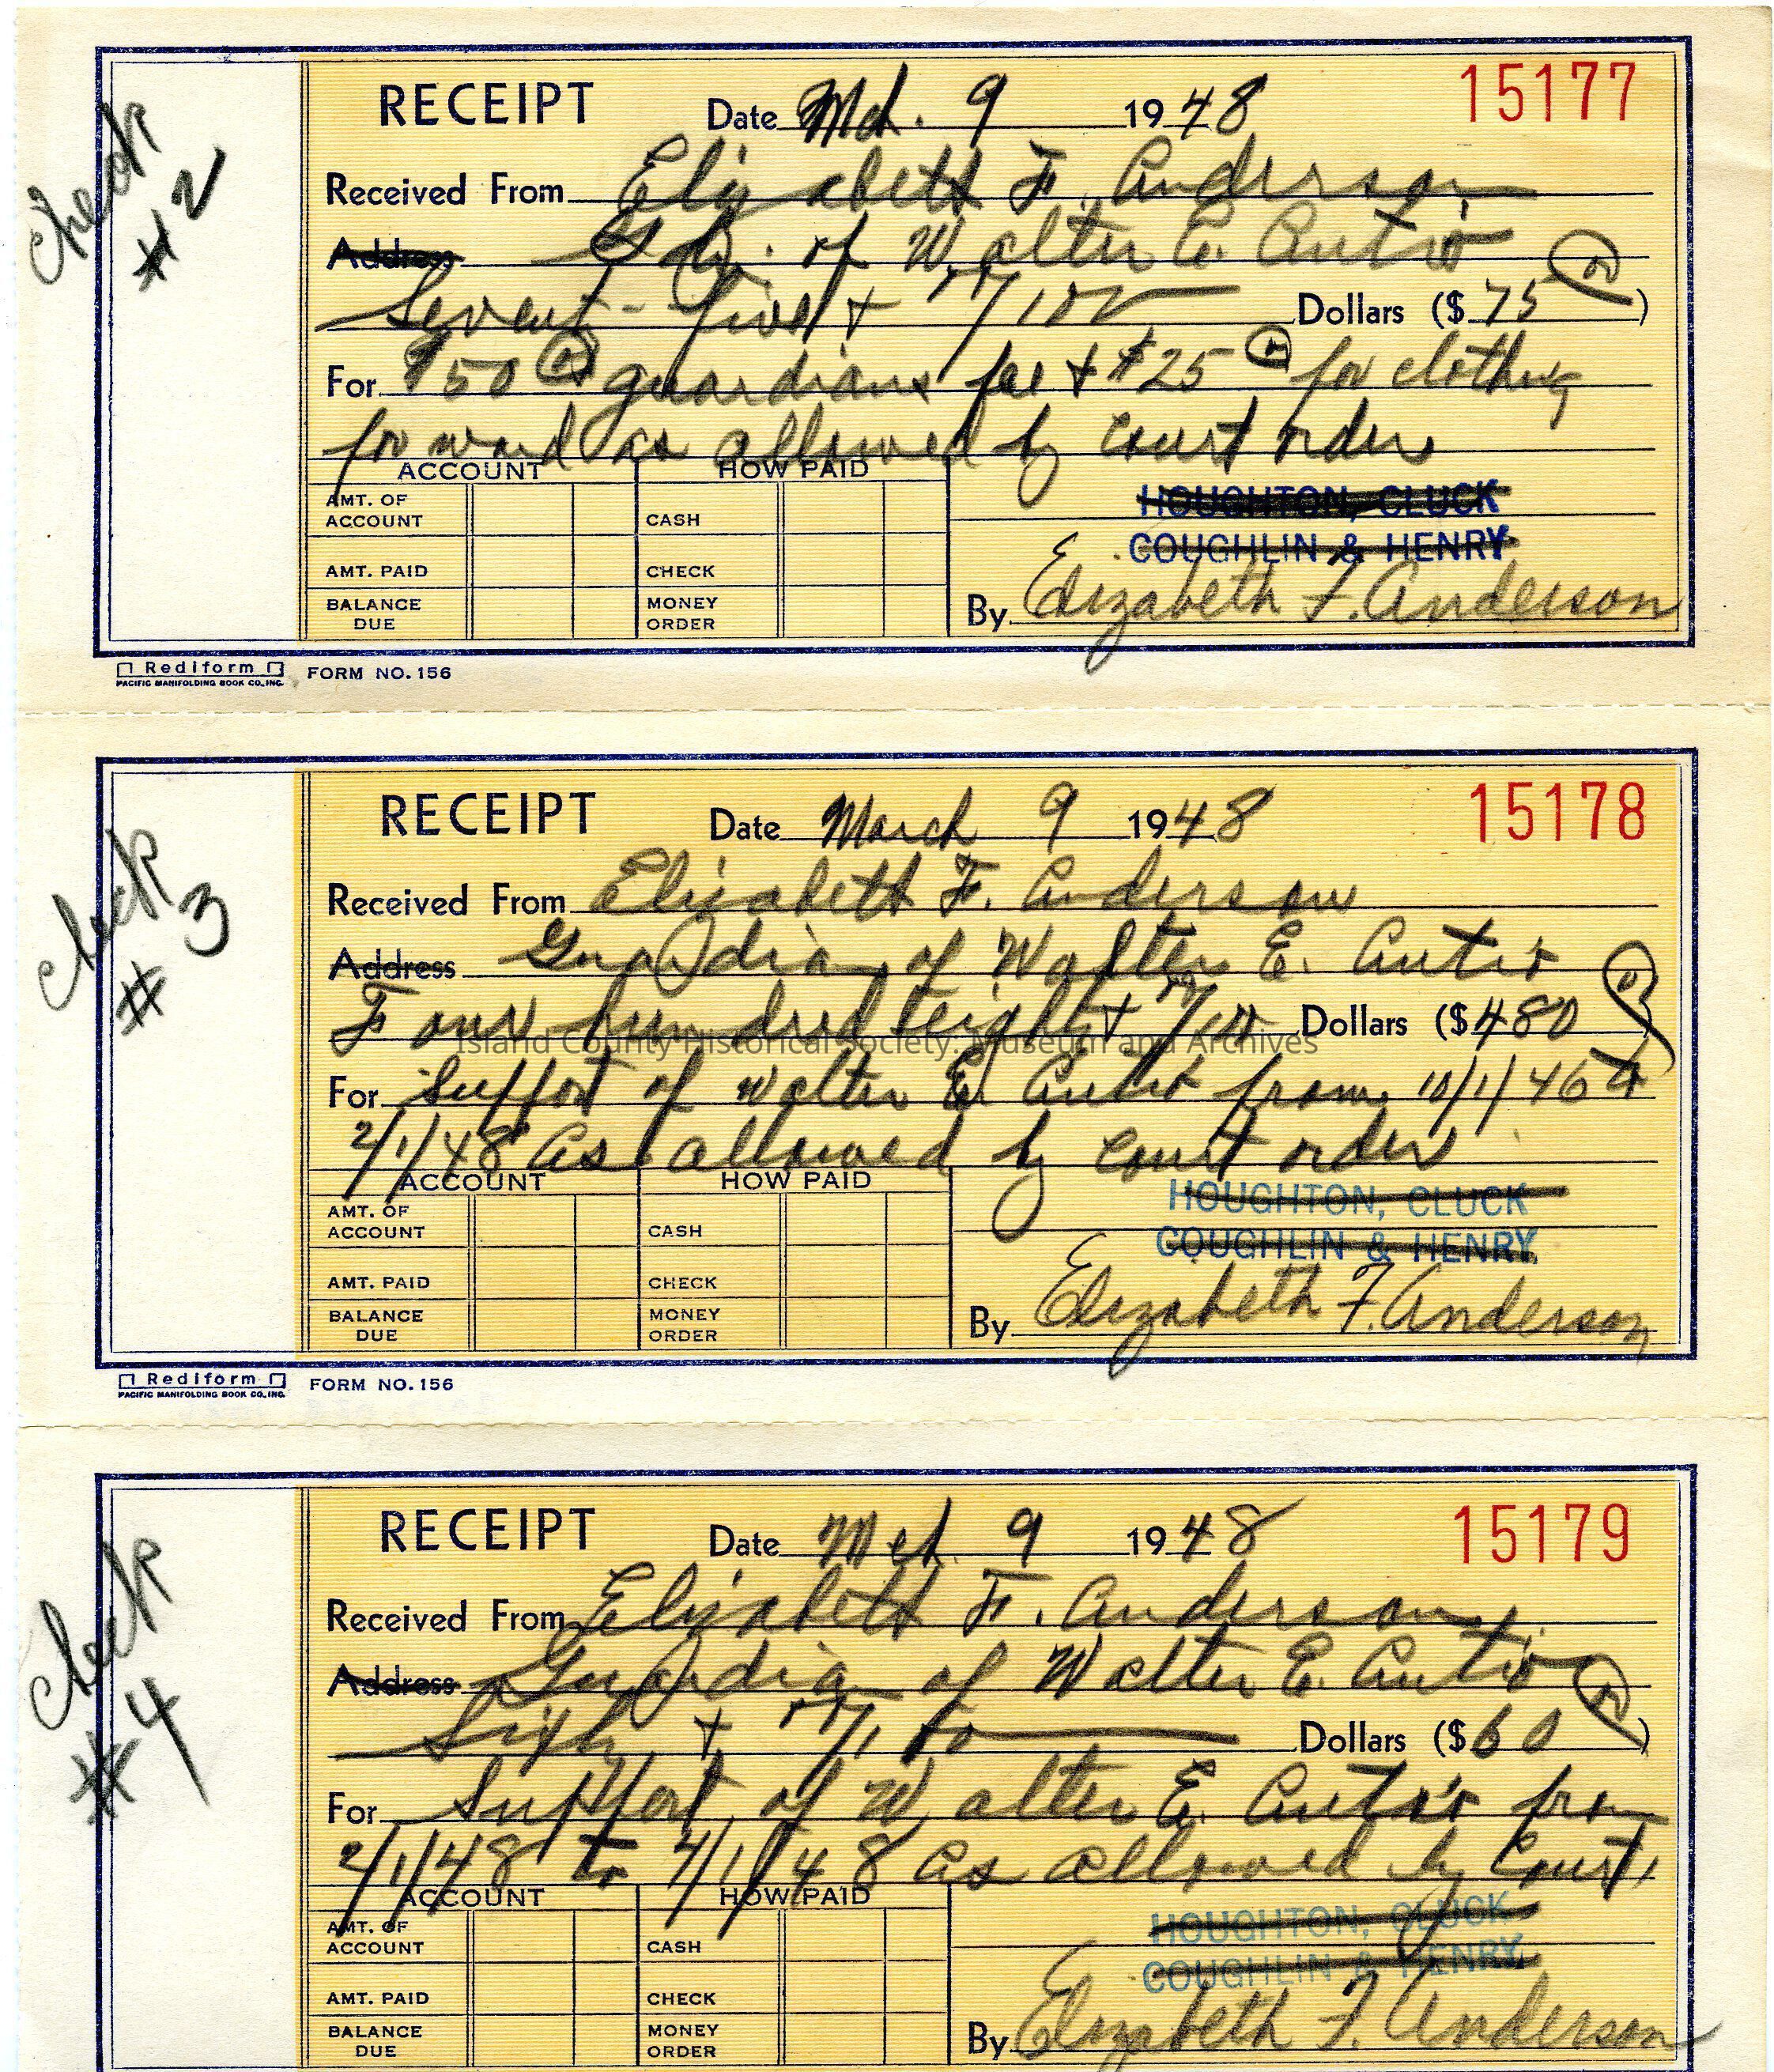 Check
#2
RECEIPT Date Mch. 9 1948 15177
Received From Elizabeth F. Anderson
Address Gdn. of Walter E. Autio
Seventy-five & no/100 Dollars ($75 00)
For $50 00 guardians fee & $25 00 for clothing
for ward as allowed by court order
ACCOUNT HOW PAID
AMT. OF ACCOUNT CASH
HOUGHTON, CLUCK
COUGHLIN & HENRY
AMT. PAID CHECK
BALANCE DUE MONEY ORDER
By Elizabeth F. Anderson
Rediform FORM NO. 156
PACIFIC MANIFOLDING BOOK CO., INC.
Check
#3
RECEIPT Date March 9 1948 15178
Received From Elizabeth F. Anderson
Address Guardian of Walter E. Autio
Four hundred eighty & no/100 Dollars ($480 00)
Island County Historical Society: Museum and Archives
For Support of Walter E. Autio from 10/1/46 to
2/1/48 as allowed by court order
ACCOUNT HOW PAID
AMT. OF ACCOUNT CASH
HOUGHTON, CLUCK
COUGHLIN & HENRY
AMT. PAID CHECK
BALANCE DUE MONEY ORDER
By Elizabeth F. Anderson
Rediform FORM NO. 156
PACIFIC MANIFOLDING BOOK CO., INC.
Check
#4
RECEIPT Date Mch. 9 1948 15179
Received From Elizabeth F. Anderson,
Address Guardian of Walter E. Autio
Sixty & no/100 Dollars ($60 00)
For Support of Walter E. Autio from
2/1/48 to 4/1/48 as allowed by Court
ACCOUNT HOW PAID
AMT. OF ACCOUNT CASH
HOUGHTON, CLUCK
COUGHLIN & HENRY
AMT. PAID CHECK
BALANCE DUE MONEY ORDER
By Elizabeth F. Anderson